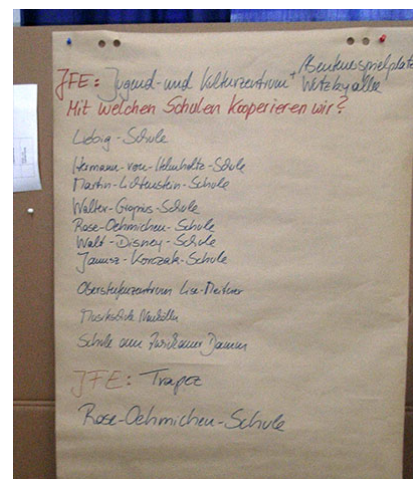 JFE: Jugend-und Kulturzentrum + Abenteuerspielplatz
Wutzkyallee
Mit welchen Schulen kooperieren wir?
Liebig-Schule
Hermann-von-Helmholtz-Schule
Martin-Lichtenstein-Schule
Walter-Gropius-Schule
Rose-Oehmichen-Schule
Walt-Disney-Schule
Janusz-Korczak-Schule
Oberstufenzentrum Lise-Meitner
Musikschule Neukölln
Schule am Zwickauer Damm
JFE: Trapez
Rose-Oehmichen-Schule